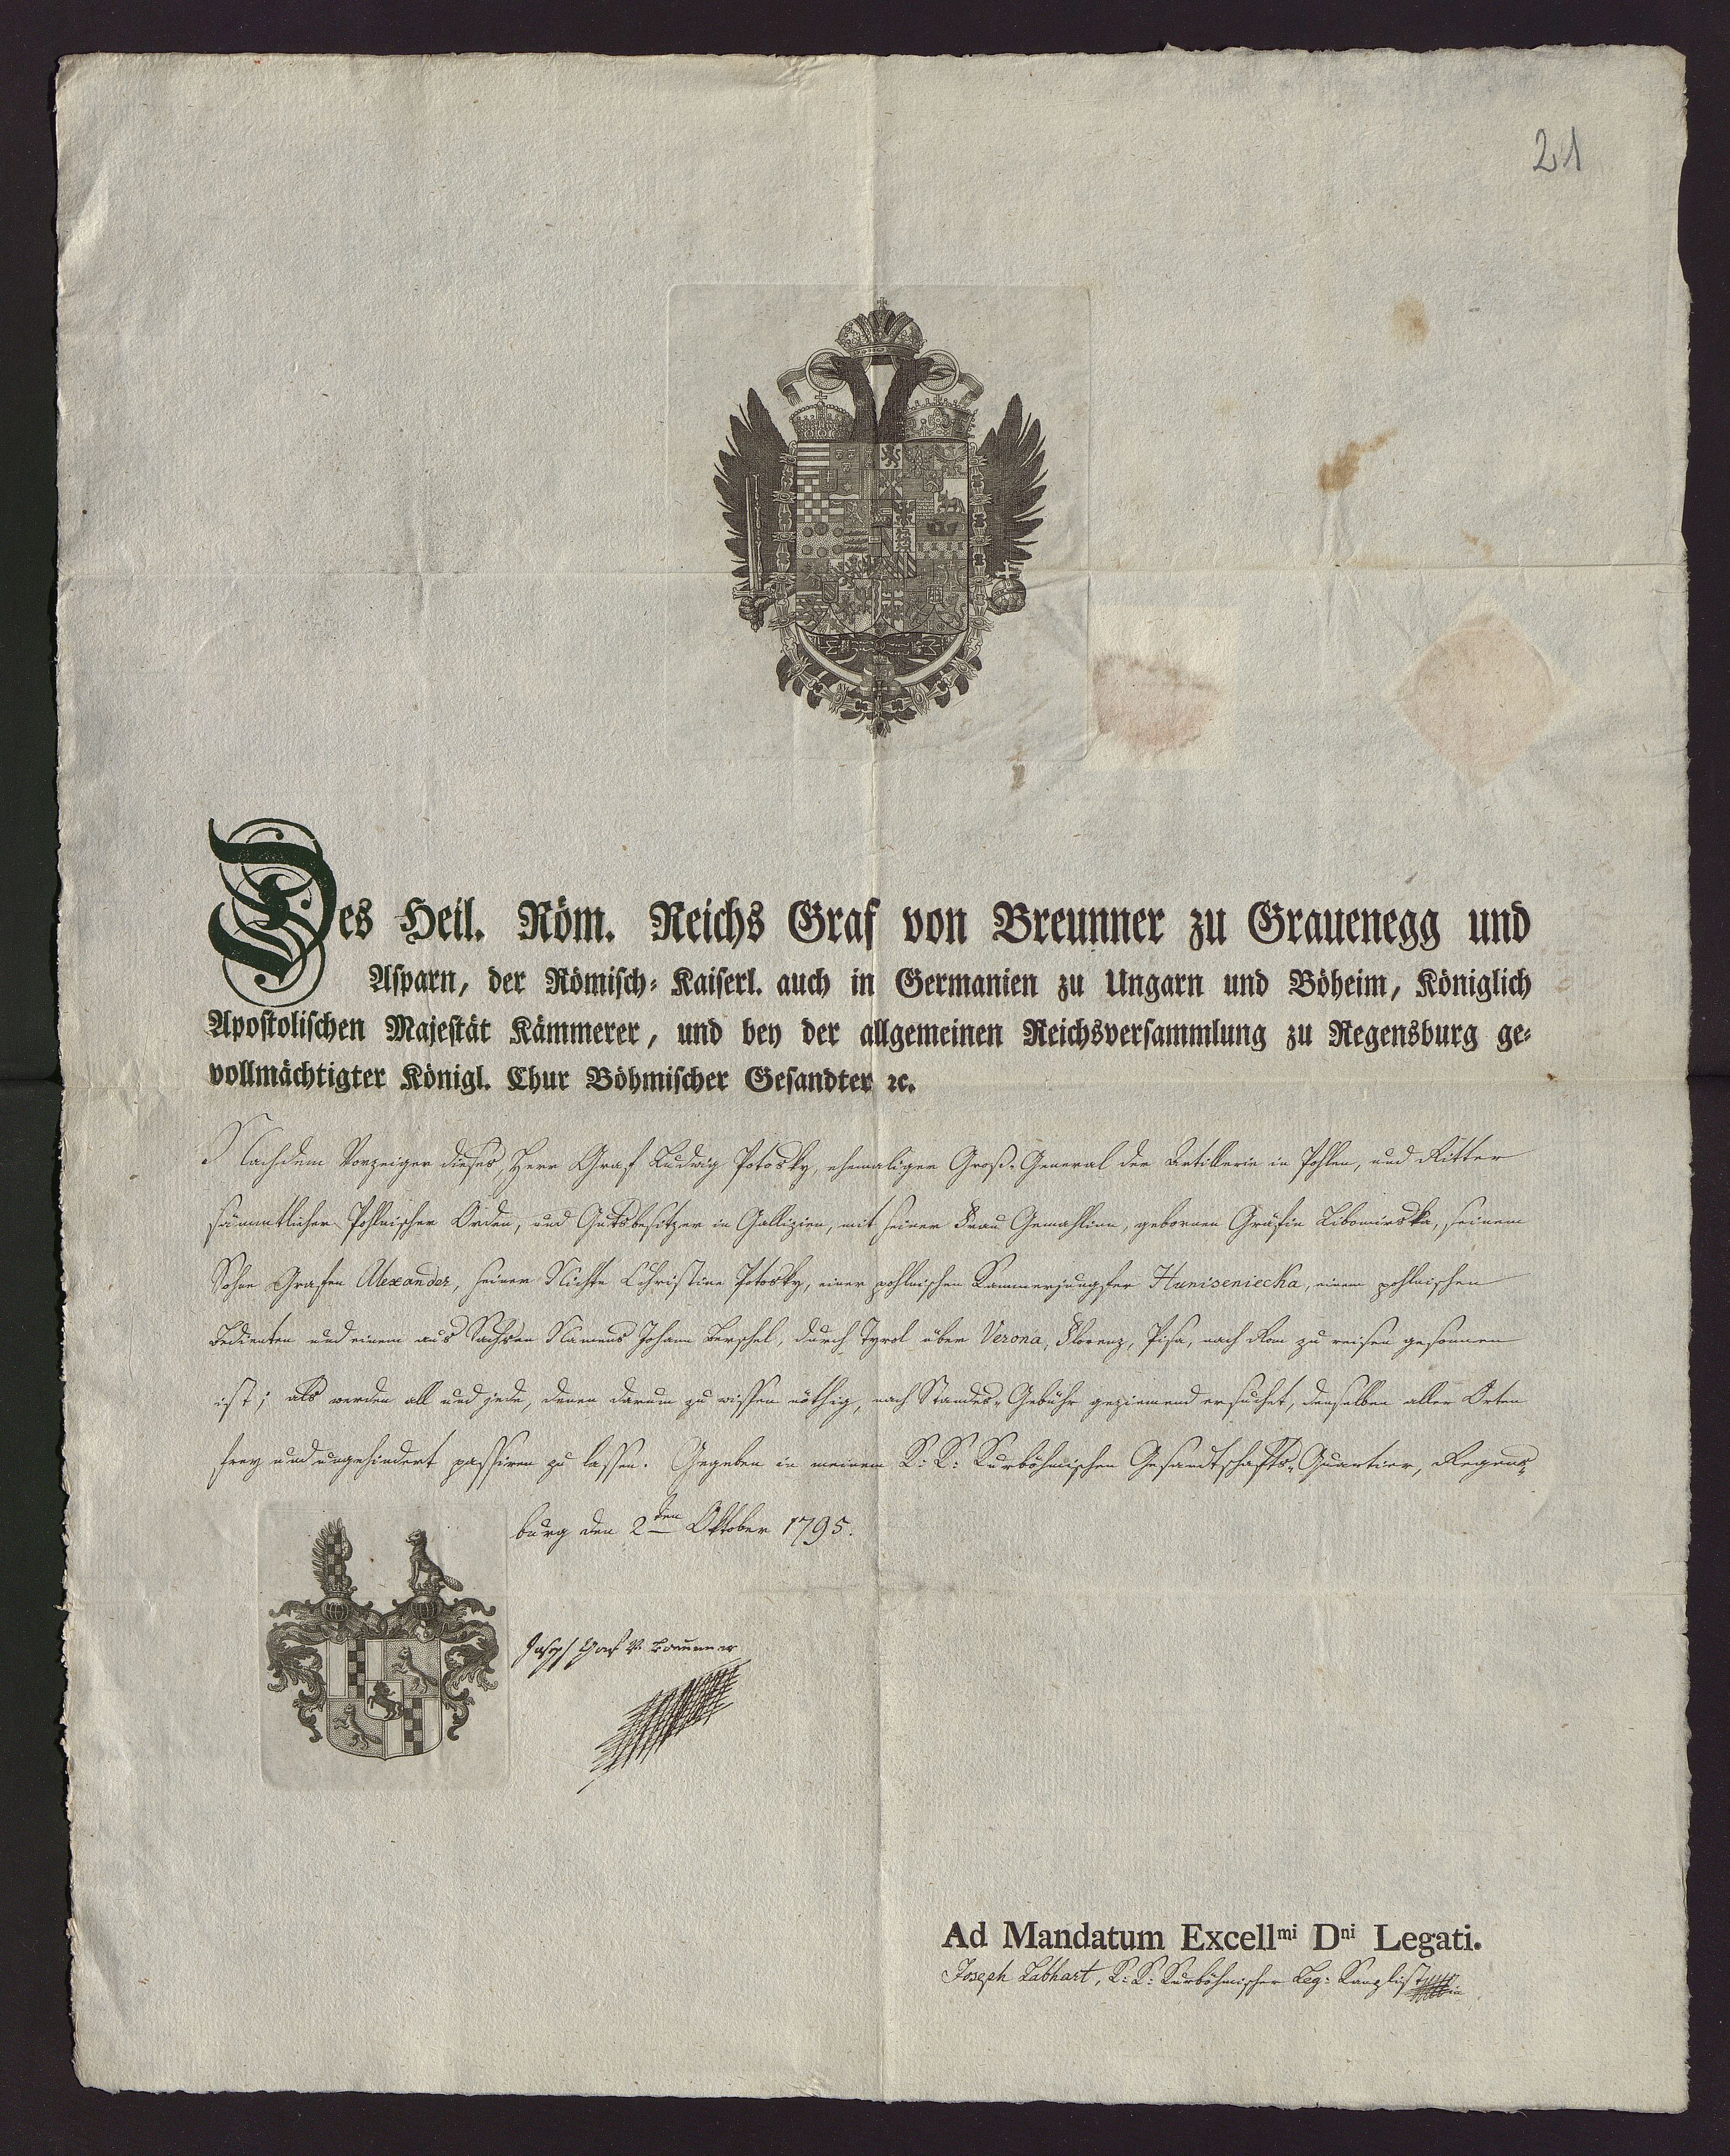 21
Des Heil. Röm. Reichs Graf von Breunner zu Grauenegg und
Asparn, der Römisch-Kaiserl. auch in Germanien zu Ungarn und Böheim, Königlich
Apostolischen Majestät Kämmerer, und bey der allgemeinen Reichsversammlung zu Regensburg ge-
vollmächtigter Königl. Chur Böhmischer Gesandter ꝛc.
Nachdem Vorzeiger dieses, Herr Graf Ludwig Potosky, ehemaliger Groß-General der Artillerie in Pohlen, und Ritter
sämmtlicher Pohlnischer Orden, und Gutsbesitzer in Gallizien, mit seiner Frau Gemahlinn, gebornen Gräfin Libomirska, seinem
Sohne Grafen Alexander, seiner Nichte Christine Potosky, einer pohlnischen Kammerjungfer Huniseniecka, einem pohlnischen
Bedienten und einem aus Sachsen Namens Johann Berschel, durch Tyrol über Verona, Florenz, Pisa, nach Rom zu reisen gesonnen
ist; als werden all und jede, denen darum zu wissen nöthig, nach Standes-Gebühr geziemend ersuchet, denselben aller Orten
frey und ungehindert passiren zu lassen. Gegeben in meinem K: K: Kurböhmischen Gesandtschafts-Quartier, Regens-
burg den 2ten Oktober 1795.
Joseph Graf v. Breunner
Ad Mandatum Excellmi Dni Legati.
Joseph Labhart, K: K: Kurböhmischer Leg: Kanzlist